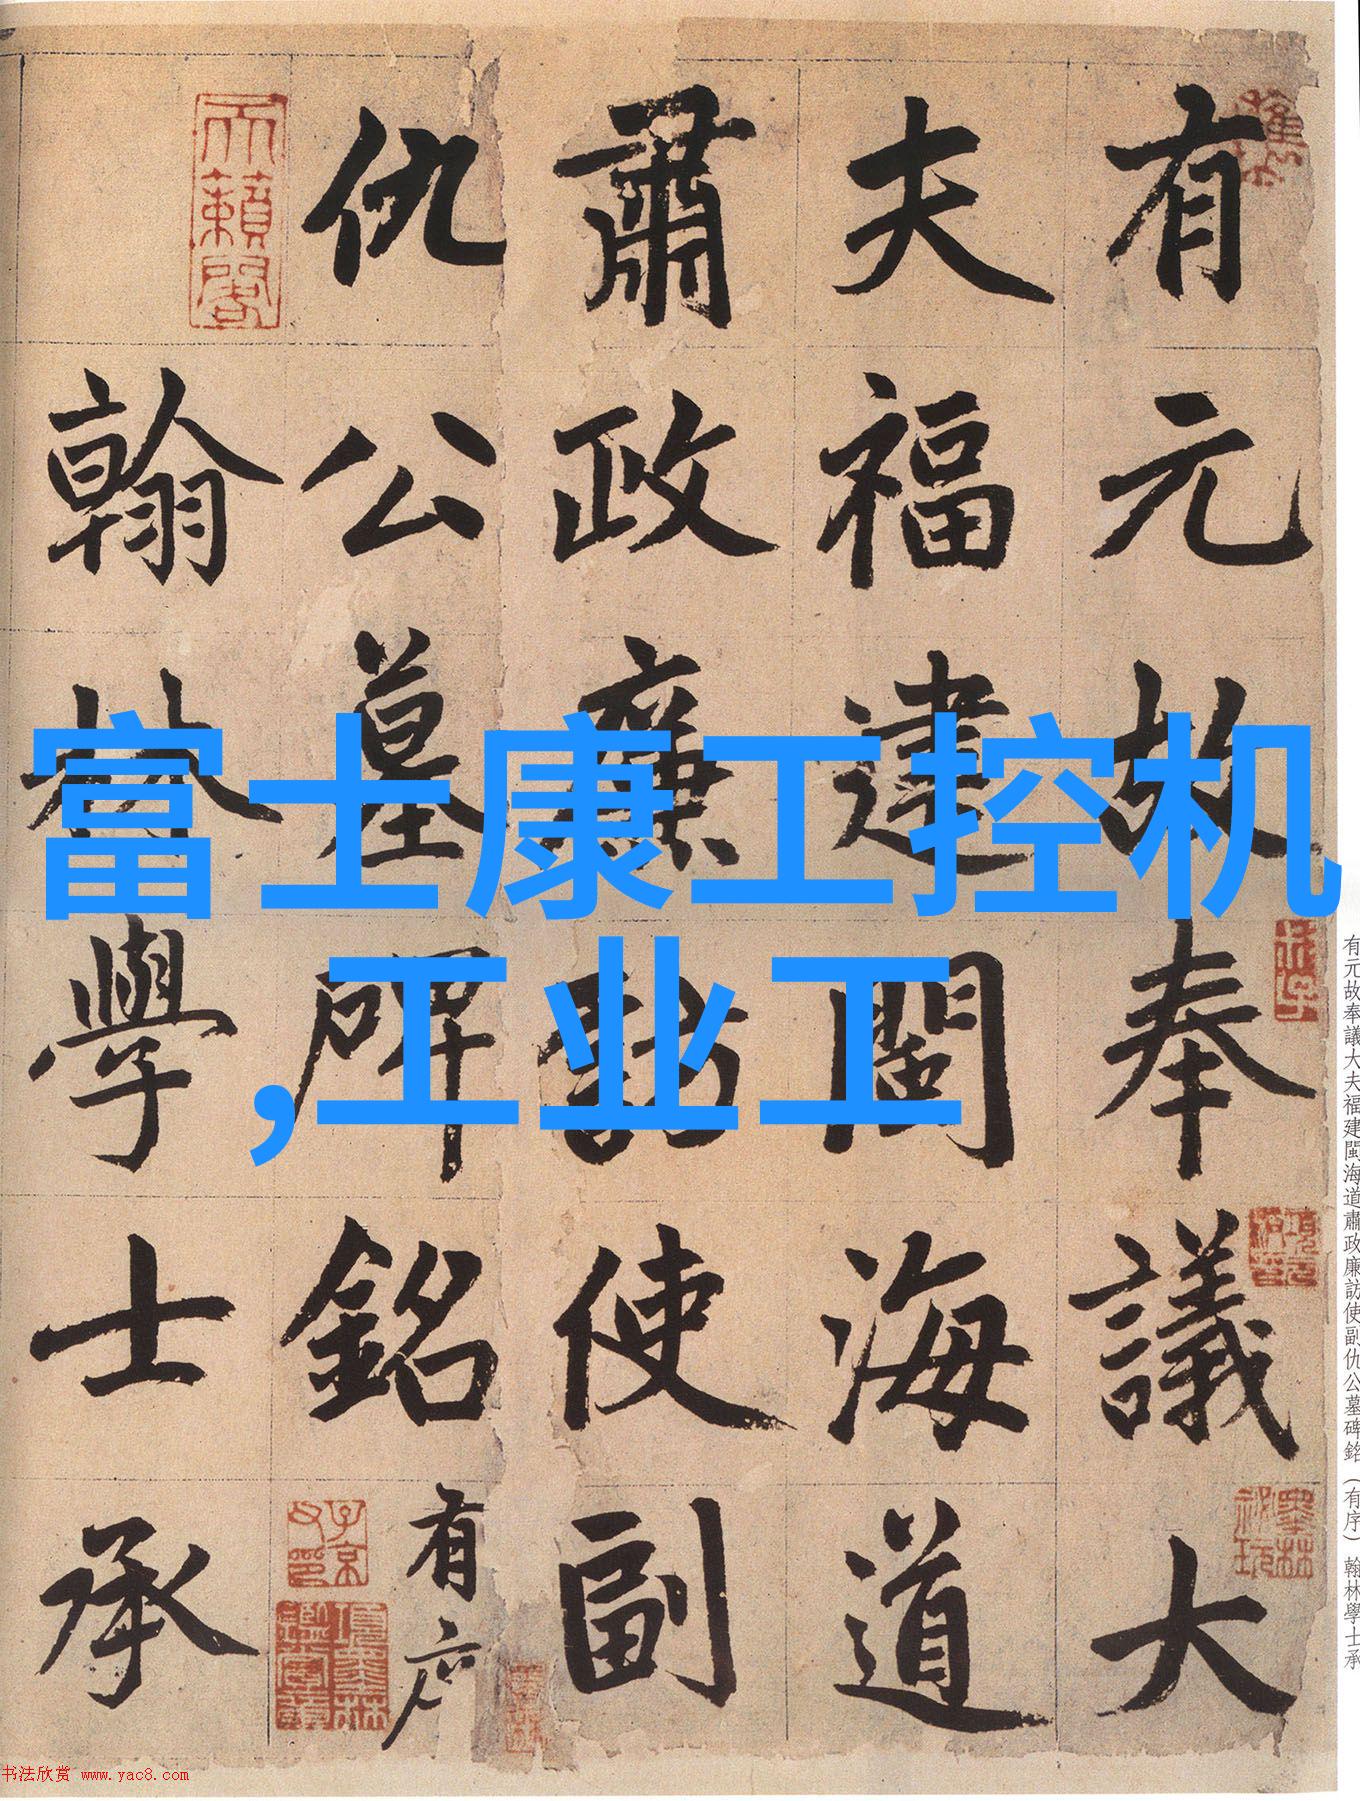 有元故奉議大
夫福建閩海道
肅政廉訪使副
仇公墓碑銘有序
翰林學士承
天籟閣
子京父印
富士康工控机
,工业工
有元故奉議大夫福建閩海道肅政廉訪使副仇公墓碑銘（有序）翰林學士承
书法欣赏 www.yac8.com